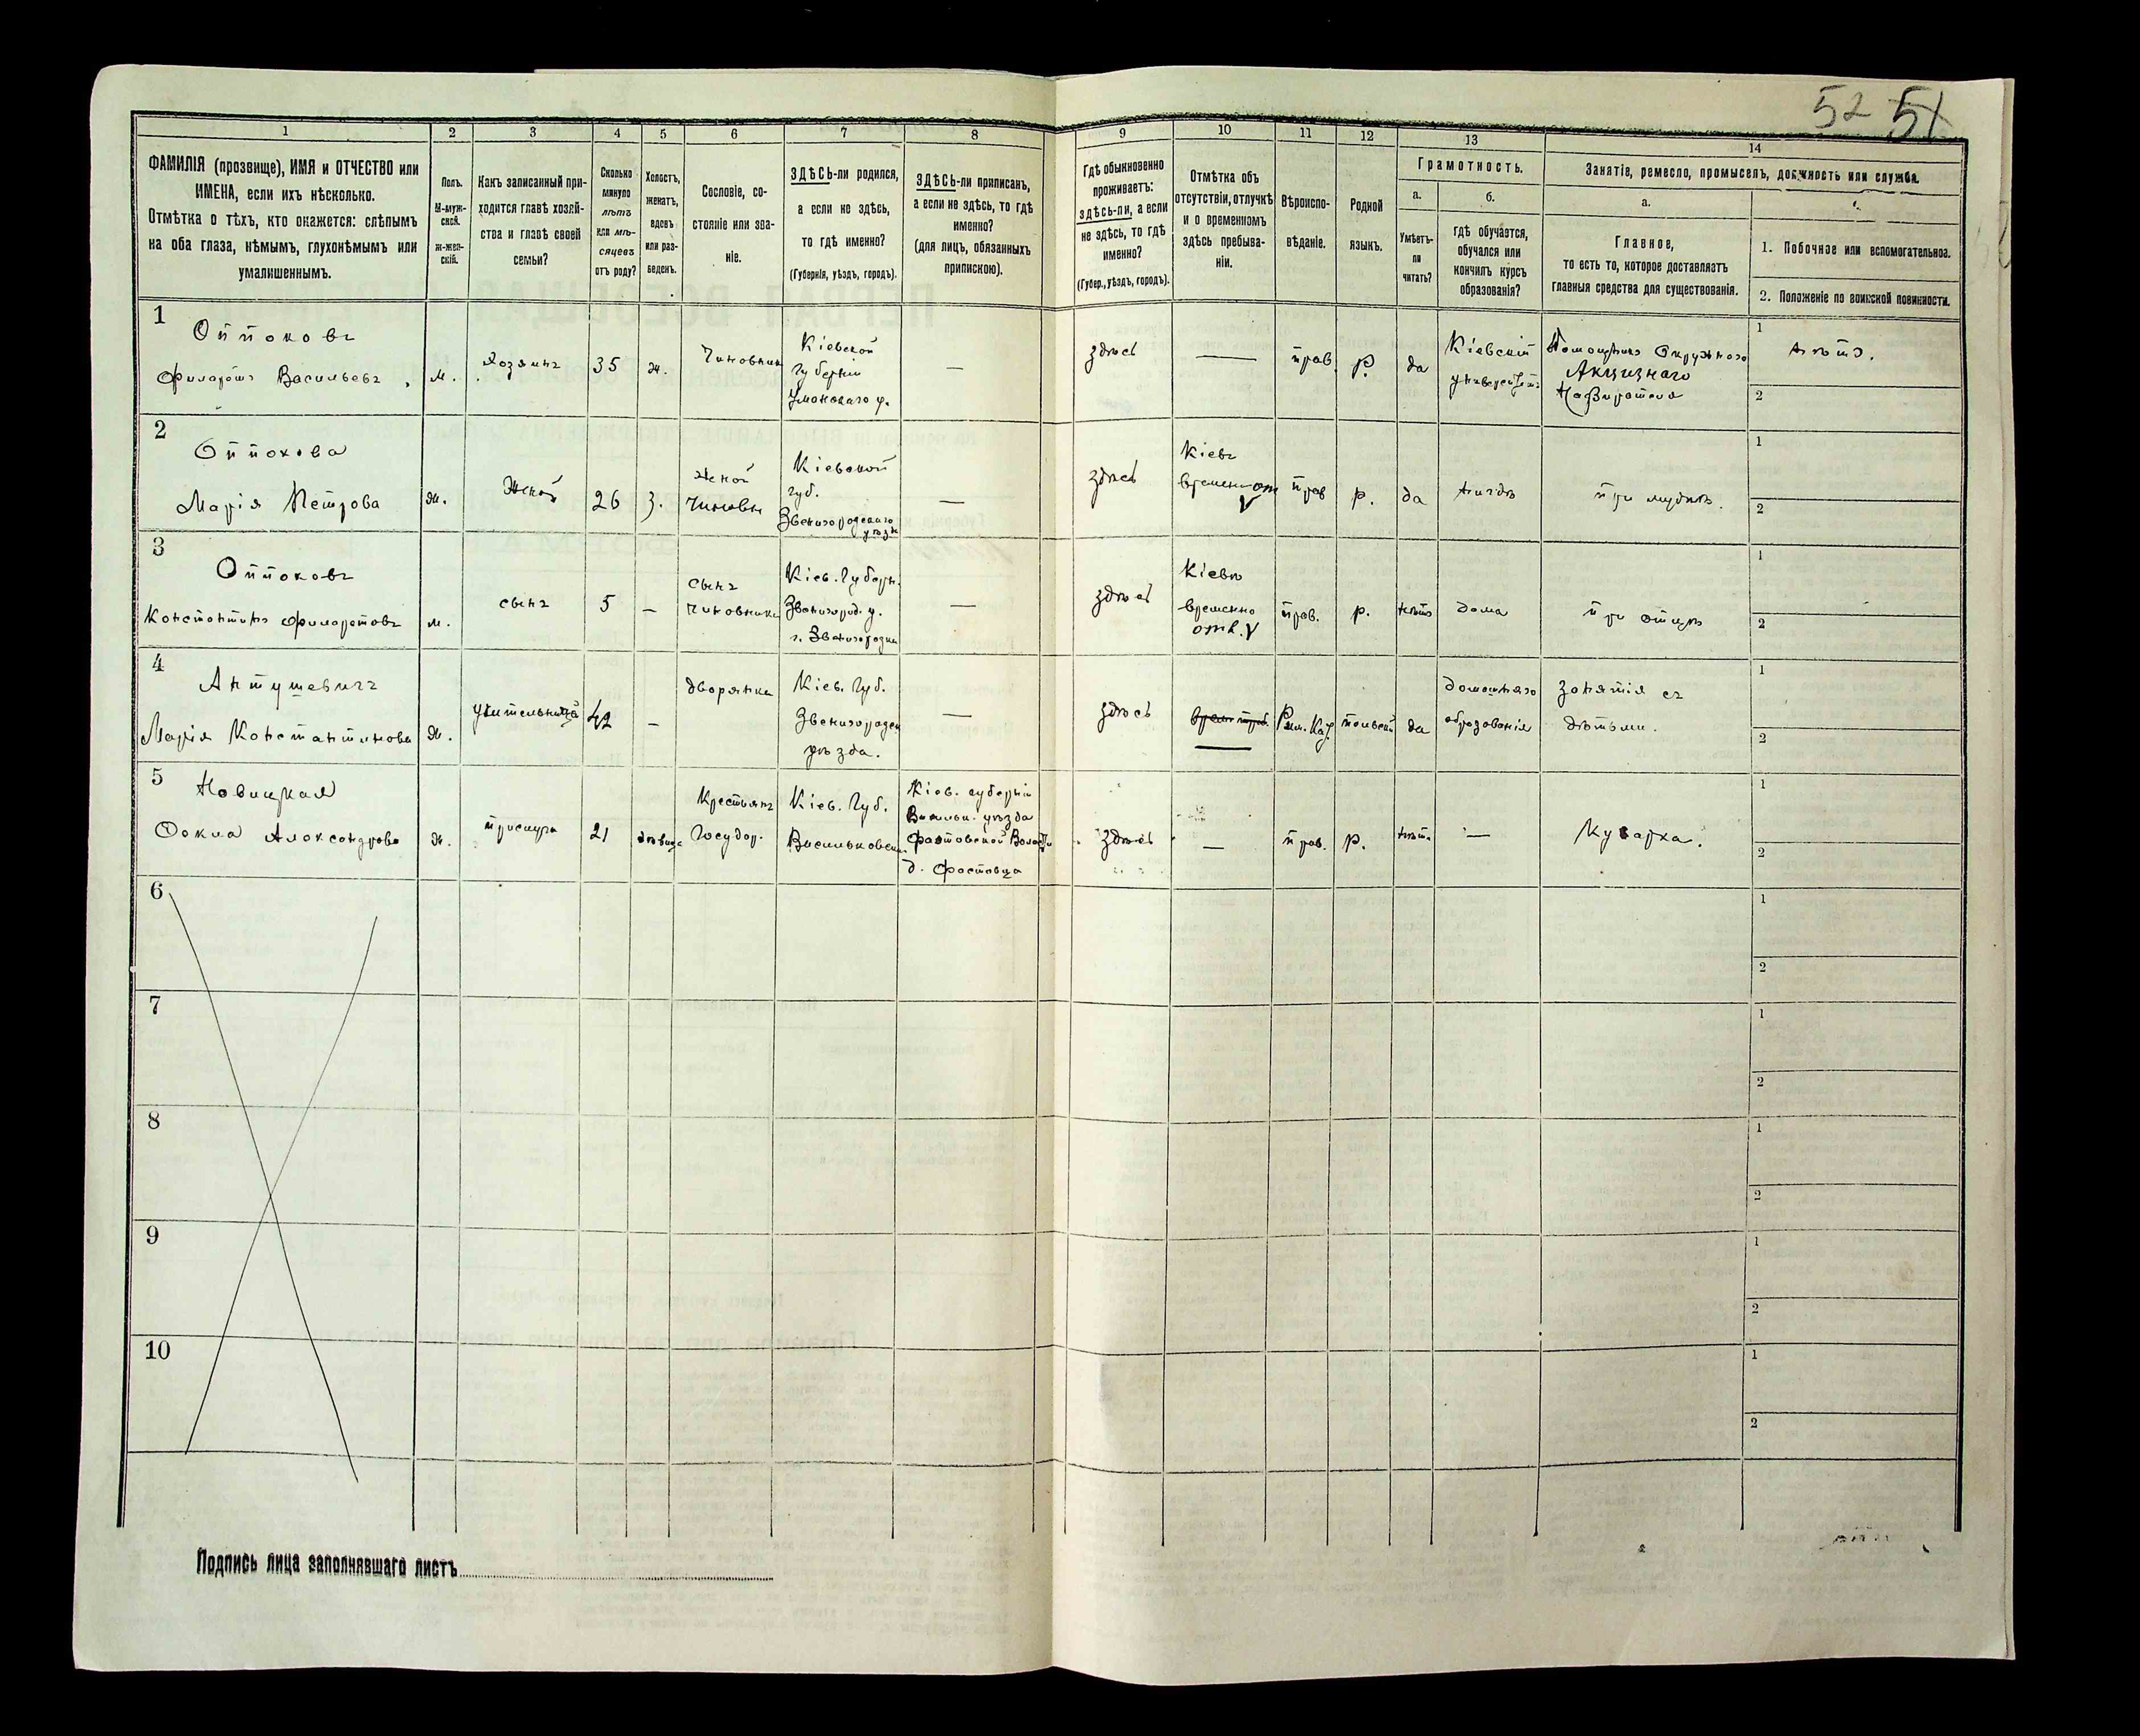 52 51
1 2 3 4 5 6 7 8 9 10 11 12 13 14
ФАМИЛІЯ (прозвище), ИМЯ и ОТЧЕСТВО или
ИМЕНА, если ихъ нѣсколько.
Отмѣтка о тѣхъ, кто окажется: слѣпымъ
на оба глаза, нѣмымъ, глухонѣмымъ или
умалишеннымъ.
Полъ.
М-муж-
ской.
ж-жен-
скій.
Какъ записанный при-
ходится главѣ хозяй-
ства и главѣ своей
семьи?
Сколько
минуло
лѣтъ
или мѣ-
сяцевъ
отъ роду?
Холостъ,
женатъ,
вдовъ
или раз-
веденъ.
Сословіе, со-
стояніе или зва-
ніе.
ЗДѢСЬ-ли родился,
а если не здѣсь,
то гдѣ именно?
(Губернія, уѣздъ, городъ).
ЗДѢСЬ-ли приписанъ,
а если не здѣсь, то гдѣ
именно?
(для лицъ, обязанныхъ
припискою).
Гдѣ обыкновенно
проживаетъ:
здѣсь-ли, а если
не здѣсь, то гдѣ
именно?
(Губер., уѣздъ, городъ).
Отмѣтка объ
отсутствіи, отлучкѣ
и о временномъ
здѣсь пребыва-
ніи.
Вѣроиспо-
вѣданіе.
Родной
языкъ.
Грамотность.
а.
Умѣетъ-
ли
читать?
б.
гдѣ обучается,
обучался или
кончилъ курсъ
образованія?
Занятіе, ремесло, промыселъ, должность или служба.
а.
Главное,
то есть то, которое доставляетъ
главныя средства для существованія.
1. Побочное или вспомогательное.
2. Положеніе по воинской повинности.
1
Оппоковъ
Филаретъ Васильевъ
м.
Хозяинъ
35
ж.
Чиновникъ
Кіевской
губерніи
Уманскаго у.
—
здѣсь
—
прав.
р.
да
Кіевскій
университ.
Помощникъ Окружного
Акцизнаго
Надзирателя
1 нѣтъ.
2
2
Оппокова
Марія Петрова
ж.
Женой
26
з.
женой
Чиновн
Кіевской
губ.
Звенигородскаго
уѣзд
—
здѣсь
Кіевъ
временно от
прав
р.
да
нигдѣ
при мужѣ.
1
2
3
Оппоковъ
Константинъ Филаретовъ
м.
сынъ
5
—
сынъ
чиновника
Кіев. Губерн.
Звенигород. у.
г. Звенигородка
—
здѣсь
Кіевъ
временно
отл.
прав.
р.
нѣтъ
дома
при отцѣ
1
2
4
Антушевичъ
Марія Константинова
ж.
учительница
42
—
дворянка
Кіев. Губ.
Звенигородск
уѣзда.
—
здѣсь
—
Рим. Кат.
польскій
да
домашняго
образованія
занятія съ
дѣтьми.
1
2
5
Новицкая
Фекла Александрова
ж.
прислуга
21
дѣвица
Крестьянъ
Государ.
Кіев. Губ.
Васильковск.
Кіев. губерніи
Васильк. уѣзда
Фастовской Волости
д. Фастовца
здѣсь
—
прав.
р.
нѣтъ
—
Кухарка.
1
2
6
1
2
7
1
2
8
1
2
9
1
2
10
1
2
Подпись лица заполнявшаго листъ